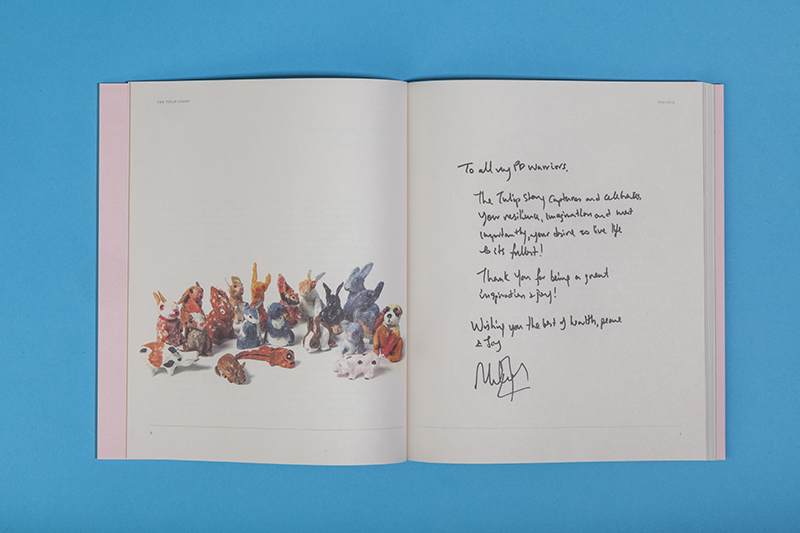 THE TULIP STORY
PREFACE
To all my PD Warriors,
The Tulip Story captures and celebrates
your resilience, imagination and most
importantly, your desire to live life
to its fullest!
Thank you for being a great
inspiration & joy!
Wishing you the best of health, peace
& joy